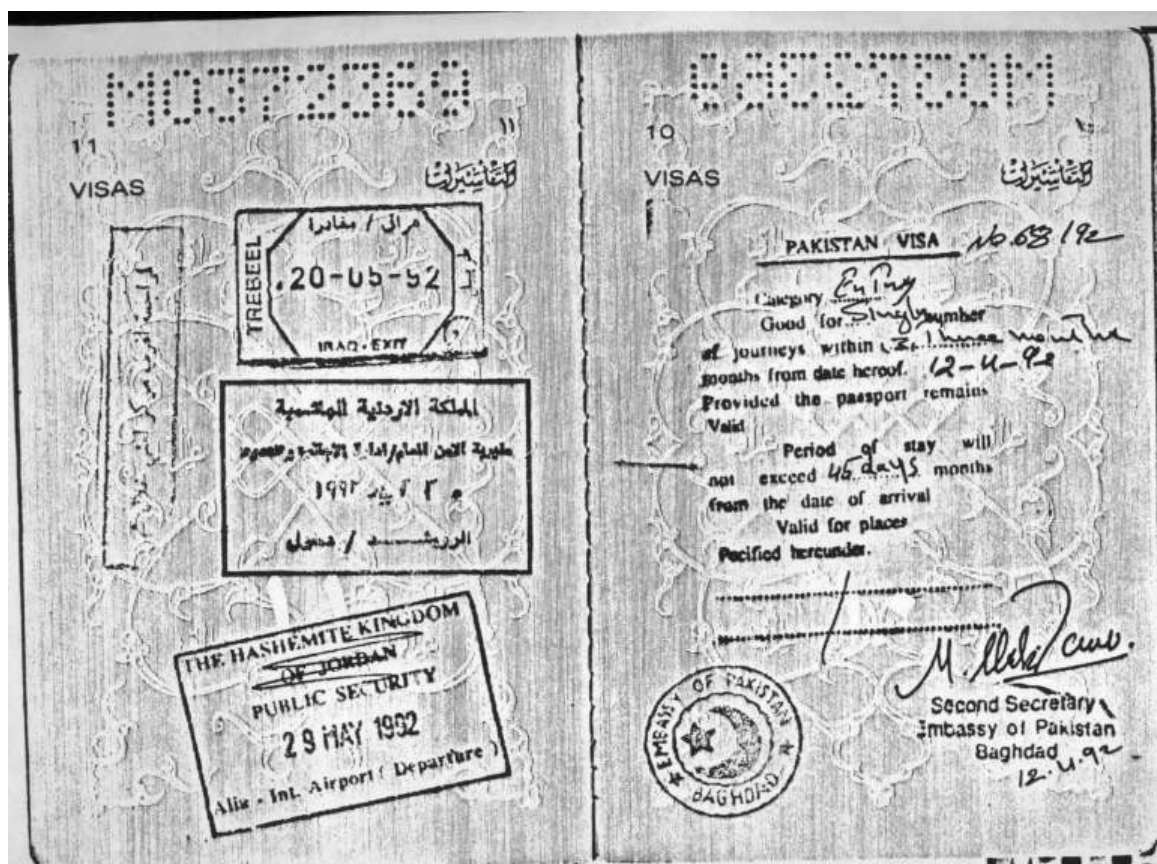 M0372369
11
VISAS
التأشيرات
TREBEEL
عراق / مغادرة
20-05-92
IRAQ - EXIT
المملكة الاردنية الهاشمية
مديرية الامن العام/ادارة الاجانب والحدود
١٩٩٢
/ دخول
THE HASHEMITE KINGDOM
OF JORDAN
PUBLIC SECURITY
29 MAY 1992
Alia - Int. Airport ( Departure )
10
VISAS
التأشيرات
PAKISTAN VISA No. 68/92
Category Entry
Good for Single number
of journeys within three months
months from date hereof. 12-4-92
Provided the passport remains
Valid
Period of stay will
not exceed 45 days months
from the date of arrival
Valid for places
Pecified hereunder.
Second Secretary
Embassy of Pakistan
Baghdad
12.4.92
EMBASSY OF PAKISTAN
BAGHDAD